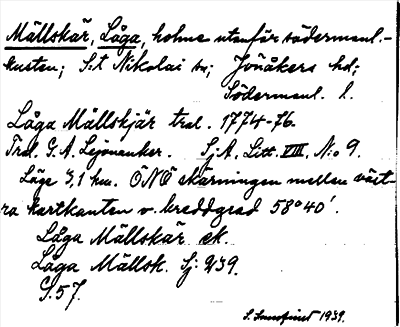 Mällskär, Låga, holme utanför södermanl.-
kusten; S:t Nikolai sn; Jönåkers hd;
Södermanl. l.
Låga Mällskjär tral. 1774-76.
Tral. G. A. Lejonanker. SjA, Litt. VIII, N:o 9.
Läge 3,1 km. ONÖ skärningen mellan väst-
ra kartkanten o. breddgrad 58°40'.
Låga Mällskär ek.
Låga Mällsk. Sj: 239.
S.57.
1939.